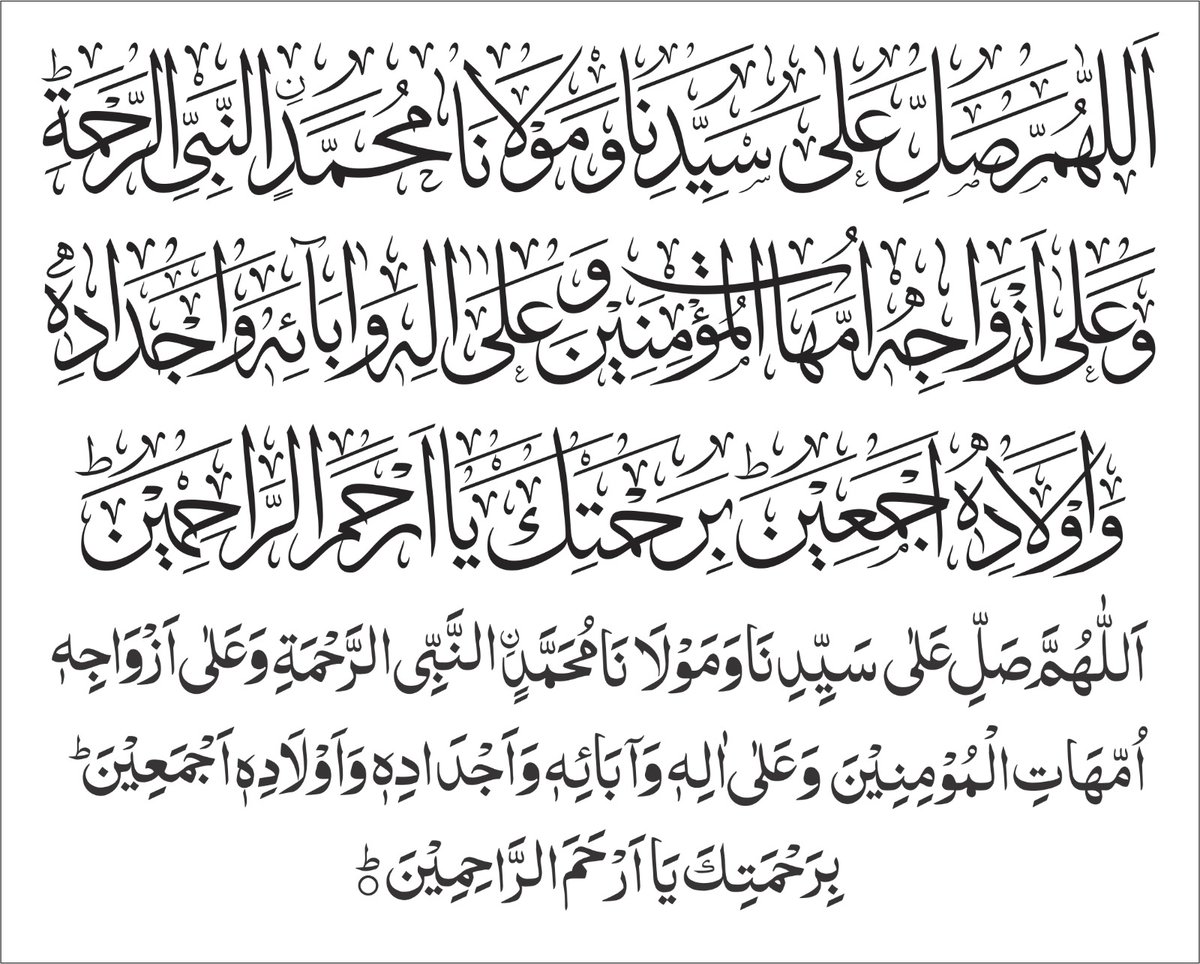 اَللّٰهُمَّ صَلِّ عَلٰى سَيِّدِنَا وَمَوْلَانَا مُحَمَّدٍ نِ النَّبِيِّ الرَّحْمَةِ ؕ
وَعَلٰى اَزْوَاجِهٖ اُمَّهَاتِ الْمُؤْمِنِيْنَ وَعَلٰى اٰلِهٖ وَاٰبَآئِهٖ وَاَجْدَادِهٖ
وَاَوْلَادِهٖ اَجْمَعِيْنَ ؕ بِرَحْمَتِكَ يَا اَرْحَمَ الرَّاحِمِيْنَ ؕ
اَللّٰهُمَّ صَلِّ عَلٰى سَيِّدِنَا وَمَوْلَا نَا مُحَمَّدٍ نِ النَّبِّى الرَّحْمَةِ وَعَلٰى اَزْوَاجِهٖ
اُمَّهَاتِ الْمُوْمِنِيْنَ وَعَلٰى اٰلِهٖ وَآبَائِهٖ وَاَجْدَادِهٖ وَاَوْلَادِهٖ اَجْمَعِيْنَ ؕ
بِرَحْمَتِكَ يَا اَرْحَمَ الرَّاحِمِيْنَ ؕ